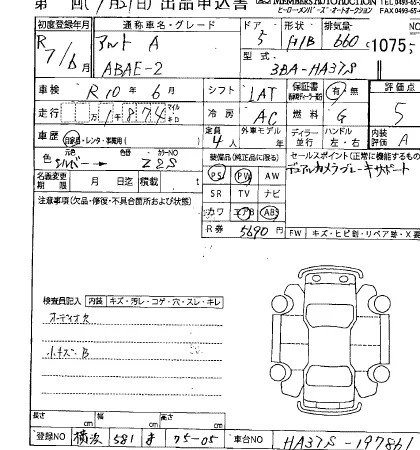 第 回( 月 日) 出品申込書 MEMBERS AUTO AUCTION
ヒーローメンバーズ・オートオークション
初度登録年月 通称車名・グレード ドア 形状 排気量
R 7/6月 アルト A 5 H/B 660 1075
ABAE-2 型式 3BA-HA37S
車検 R 10年 6月 シフト IAT 保証書 有・無 評価点
走行 1 874 マイル キロ 冷房 AC 燃料 G 5
車歴 自家用・レンタ・事務用( ) 定員 4人 外車モデル ディーラー 並行 ハンドル 左・右 内装 A
色 元色 シルバー→ 色替 カラーNO Z2S 装備品(純正品に限る) セールスポイント(正常に機能するもの)
名義変更期限 月 日迄 積載 PS PW AW デュアルカメラブレーキサポート
SR TV ナビ
注意事項(欠品・修復・不具合箇所および状態) カワ エアB ABS
R券 5690 FW キズ・ヒビ割・リペア跡・X要
検査員記入 内装 キズ・汚レ・コゲ・穴・スレ・キレ
オーディオ欠
小キズ・B
長さ cm 幅 cm 高さ cm
登録NO 横浜 581 ま 75-05 車台NO HA37S-197861